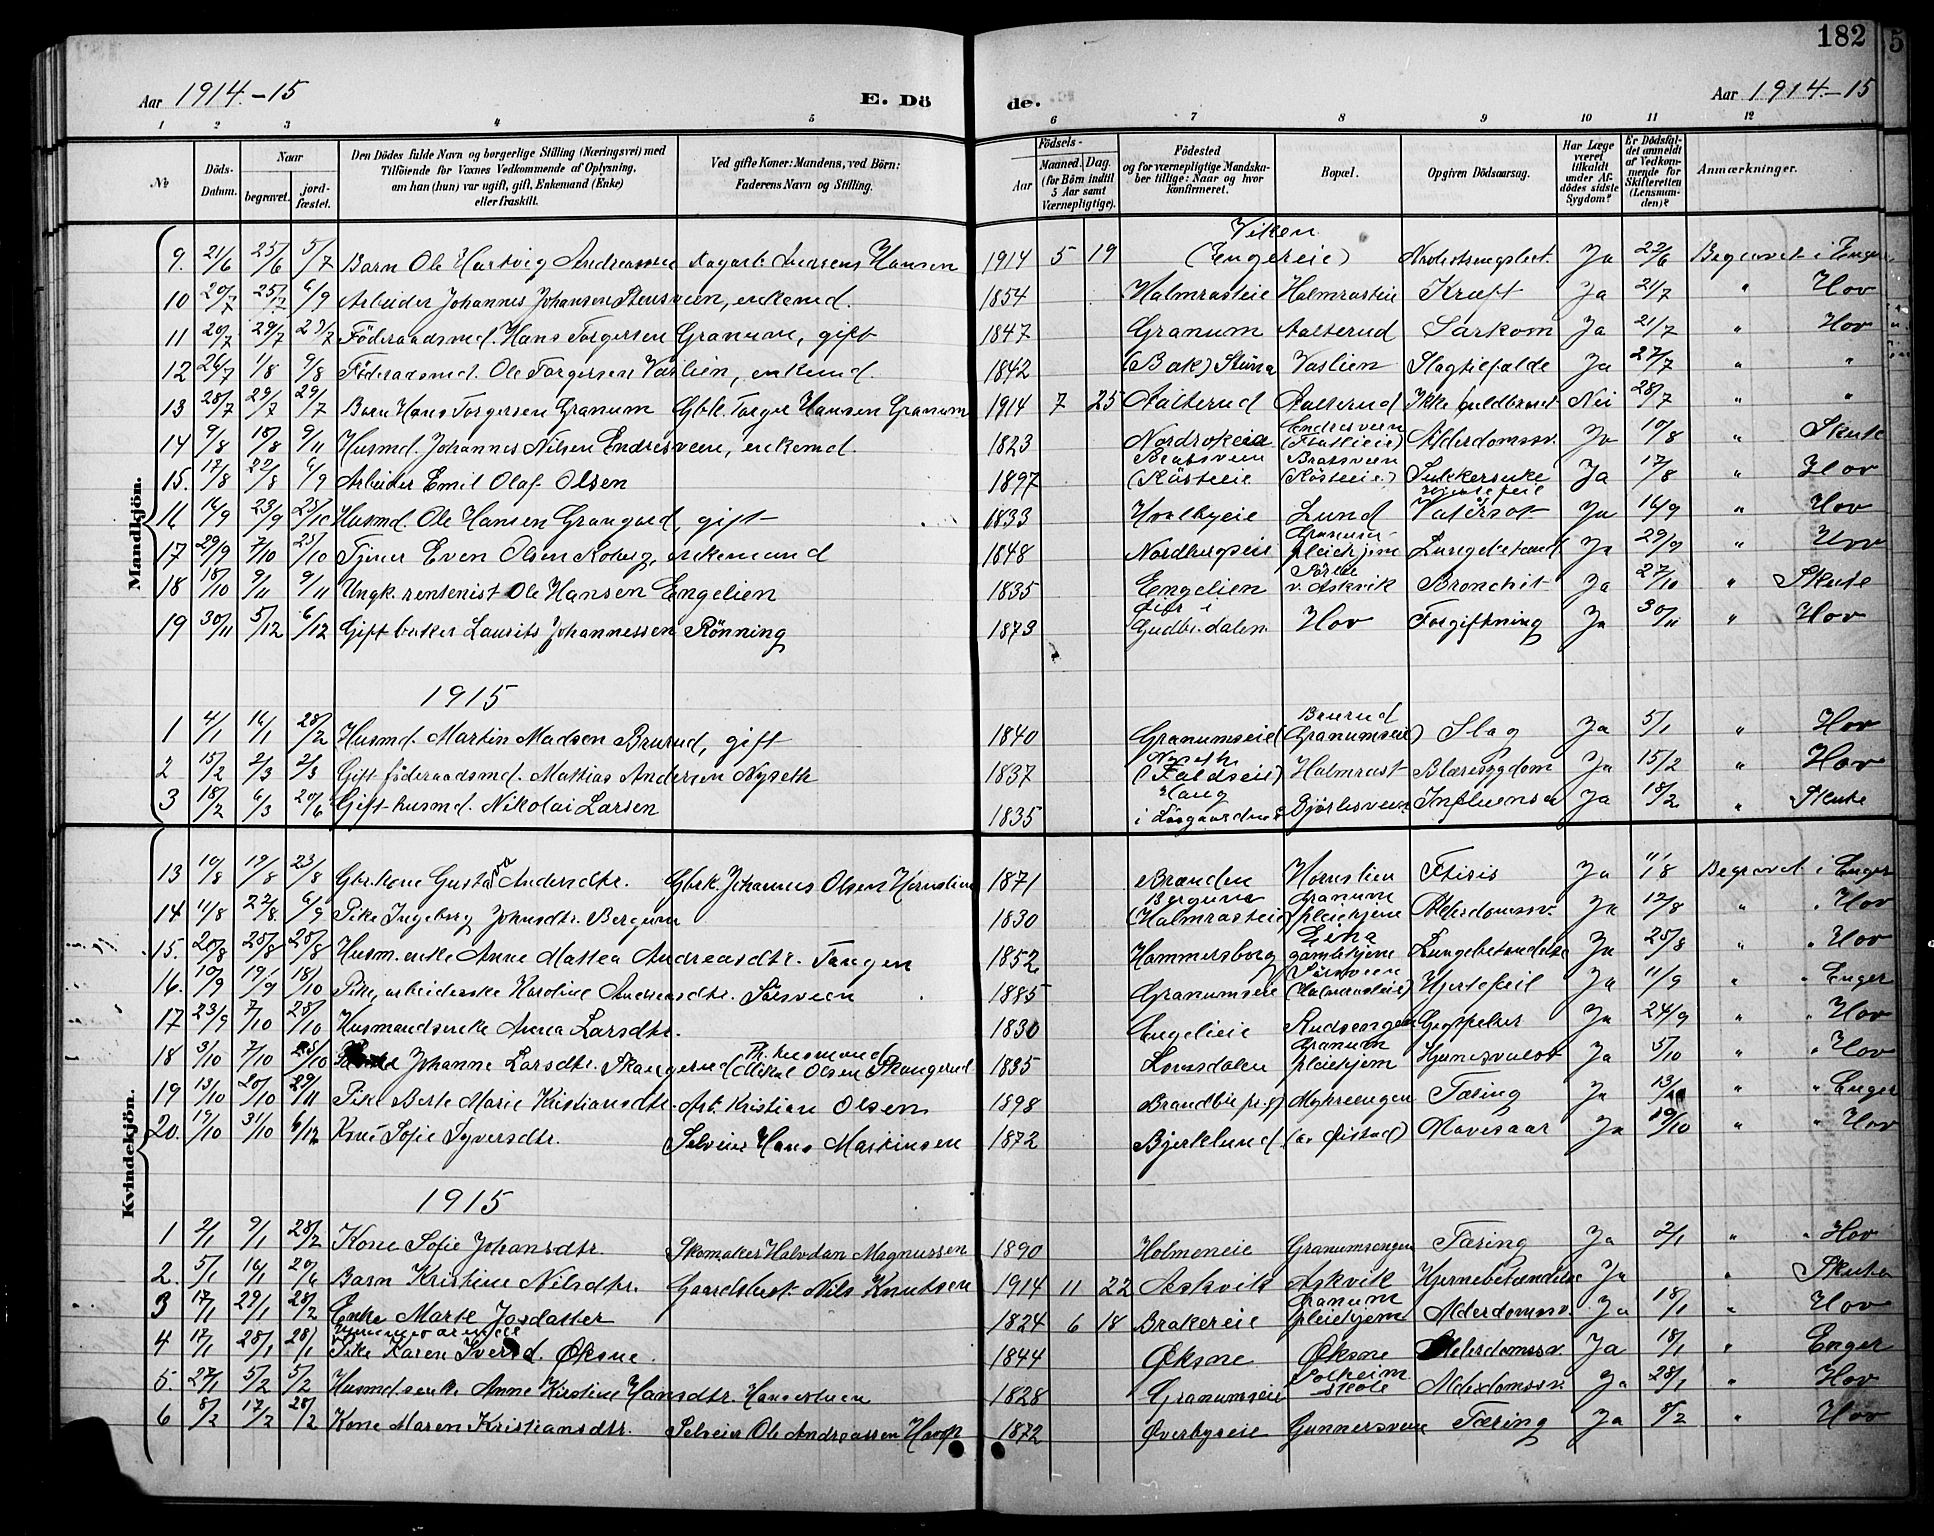 182
5
Aar 1914.-15
E. Dö
de.
Aar 1914.-15
1 2 3 4 5 6 7 8 9 10 11 12
№
Döds-Datum.
Naar
begravet.
jord-fæstet.
Den Dödes fulde Navn og borgerlige Stilling (Næringsvei) med Tilföiende for Voxnes Vedkommende af Oplysning, om han (hun) var ugift, gift, Enkemand (Enke) eller fraskilt.
Ved gifte Koner: Mandens, ved Börn: Faderens Navn og Stilling.
Födsels-
Aar
Maaned. Dag.
(for Börn indtil 5 Aar samt Værnepligtige).
Födested og for værnepligtige Mandskaber tillige: Naar og hvor konfirmeret.
Bopæl.
Opgiven Dödsaarsag.
Har Læge været tilkaldt under Afdödes sidste Sygdom?
Er Dödsfaldet anmeldt af Vedkommende for Skifteretten (Lensmanden)?
Anmærkninger.
Mandkjön.
9. 21/6 25/6 5/7 Barn Ole Hartvig Andreassen Hansen 1914 5 19 Viken (Engereie) Ja 22/6 Begravet i Enger
10 20/7 25/7 6/9 Arbeider Johannes Johansen Stensveen, enkemd. 1854 Halmrasteie Halmrasteie Kræft Ja 21/7 " Hov
11 20/7 29/7 23/7 Föderaadsmd. Hans Torgersen Granum, gift 1847 Granum Aalterud Sarkom Ja 21/7 " Hov
12 26/7 1/8 9/8 Föderaadsmd. Ole Torgersen Vaslien, enkemd. 1842 (Bak) Vaslien Slagtilfælde Ja 27/7 " "
13 28/7 29/7 29/7 Barn Hans Torgersen Granum Gbk. Torger Hansen Granum 1914 7 25 Aalterud Aalterud Ikke fuldbaaret Nei 28/7 " "
14 9/8 18/8 9/11 Husmd. Johannes Nilsen Endresveen, enkemd. 1823 Nordrokeie Endresveen Alderdomssv. Ja 10/8 " Skute
15. 17/8 22/8 6/9 Arbeider Emil Olaf Olsen 1897 Bratsveen (Rösteeie) Bratsveen (Rösteeie) Sukkersyke Ja 17/8 " Hov
16 14/9 23/9 25/10 Husmd. Ole Hansen Grangaard, gift 1833 Hvalbyeie Lund Hjertefeil Vatersot Ja 16/9 " Hov
17 29/9 7/10 25/10 Tjener Even Olsen Koberg, enkemand 1848 Nordbergseie Granum pleiehjem Lungebetænd. Ja 29/9 " Hov
18 18/10 9/11 9/11 Ungk. rentenist Ole Hansen Engelien 1835 Engelien v. Askvik Bronchit Ja 27/10 " Skute
19 30/11 5/12 6/12 Gift baker Laurits Johannessen Rönning 1873 i Gudbr.dalen Hov Forgiftning Ja 30/11 " Hov
1915
1 4/1 16/1 28/2 Husmd. Martin Madsen Brurud, gift 1840 Granumseie Brurud (Granumseie) Slag Ja 5/1 " Hov
2 15/2 2/3 2/3 Gift föderaadsmd. Mattias Andersen Nyseth 1837 Nyseth (Faldseie) Halmrast Blæresygdom Ja 15/2 " Hov
3 18/2 6/3 20/6 Gift husmd. Nikolai Larsen 1835 Haug i Gjörlisveen Influensa Ja 18/2 " Skute
Kvindekjön.
13 10/8 19/8 23/8 Gbr.kone Gustava Andersdtr. Gbrk. Johannes Olsen Hornslien 1871 Branden Hornslien Ftisis Ja 11/8 Begravet i Enger
14 11/8 22/8 6/9 Pike Ingeborg Johnsdtr. Bergum 1830 Bergum (Halmrasteie) Granum pleiehjem Alderdomssv. Ja 12/8 " " Hov
15. 20/8 28/8 28/8 Husm.enke Anne Mattea Andreasdtr. Tangen 1852 Hammersborg Eina gamlehjem Lungebetændelse Ja 25/8 " " Hov
16. 10/9 19/9 18/10 Pike, arbeiderske Karoline Andreasdtr. Sörsveen 1885 Granumseie Sörsveen (Halmrasteie) Hjertefeil Ja 11/9 " " Enger
17 23/9 7/10 28/10 Husmandsenke Anna Larsdtr. 1830 Engelieie Rudsengen Ja 24/9 " " Hov
18 3/10 7/10 25/10 Johanne Larsdtr. Skangerud (Th. husmand Mikal Olsen Skangerud 1835 Lomsdalen Granum pleiehjem Hjernesvulst Ja 5/10 " " Hov
19 13/10 20/10 29/11 Pike Berte Marie Kristiansdtr. Arb. Kristian Olsen 1898 Myhreengen Tæring Ja 13/10 " " Enger
20. 19/10 31/10 6/12 Kone Sofie Syversdtr. Selveier Hans Martinsen 1872 Bjerklund (av Öistad) Mavesaar Ja 19/10 " " Hov
1915
1 2/1 9/1 28/2 Kone Sofie Johansdtr. Skomaker Halvdan Magnussen 1890 Holmeneie Granumsengen Tæring Ja 2/1 " " Hov
2. 5/1 16/1 20/6 Barn Kristine Nilsdtr. Gaardsbest. Nils Knutsen 1914 11 22 Askvik Askvik Hjernebetændelse Ja " Skute
3 17/1 29/1 28/2 Enke Marte Josdatter 1824 6 18 Brakereie Granum pleiehjem Alderdomssv. Ja 18/1 " Hov
4 17/1 28/1 28/1 Pike Karen Iversd. Øksne. 1844 Øksne Øksne Alderdomssv. Ja 18/1 " Enger
5. 27/1 5/2 5/2 Husmdsenke Anne Kirstine Hansdtr. 1828 Granumseie Solheim skole Alderdomssv. Ja 28/1 " Hov
6 8/2 17/2 28/2 Kone Maren Kristiansdtr. Selveier Ole Andreassen 1872 Øverbyseie Gunnersveen Tæring Ja 8/2 " Hov